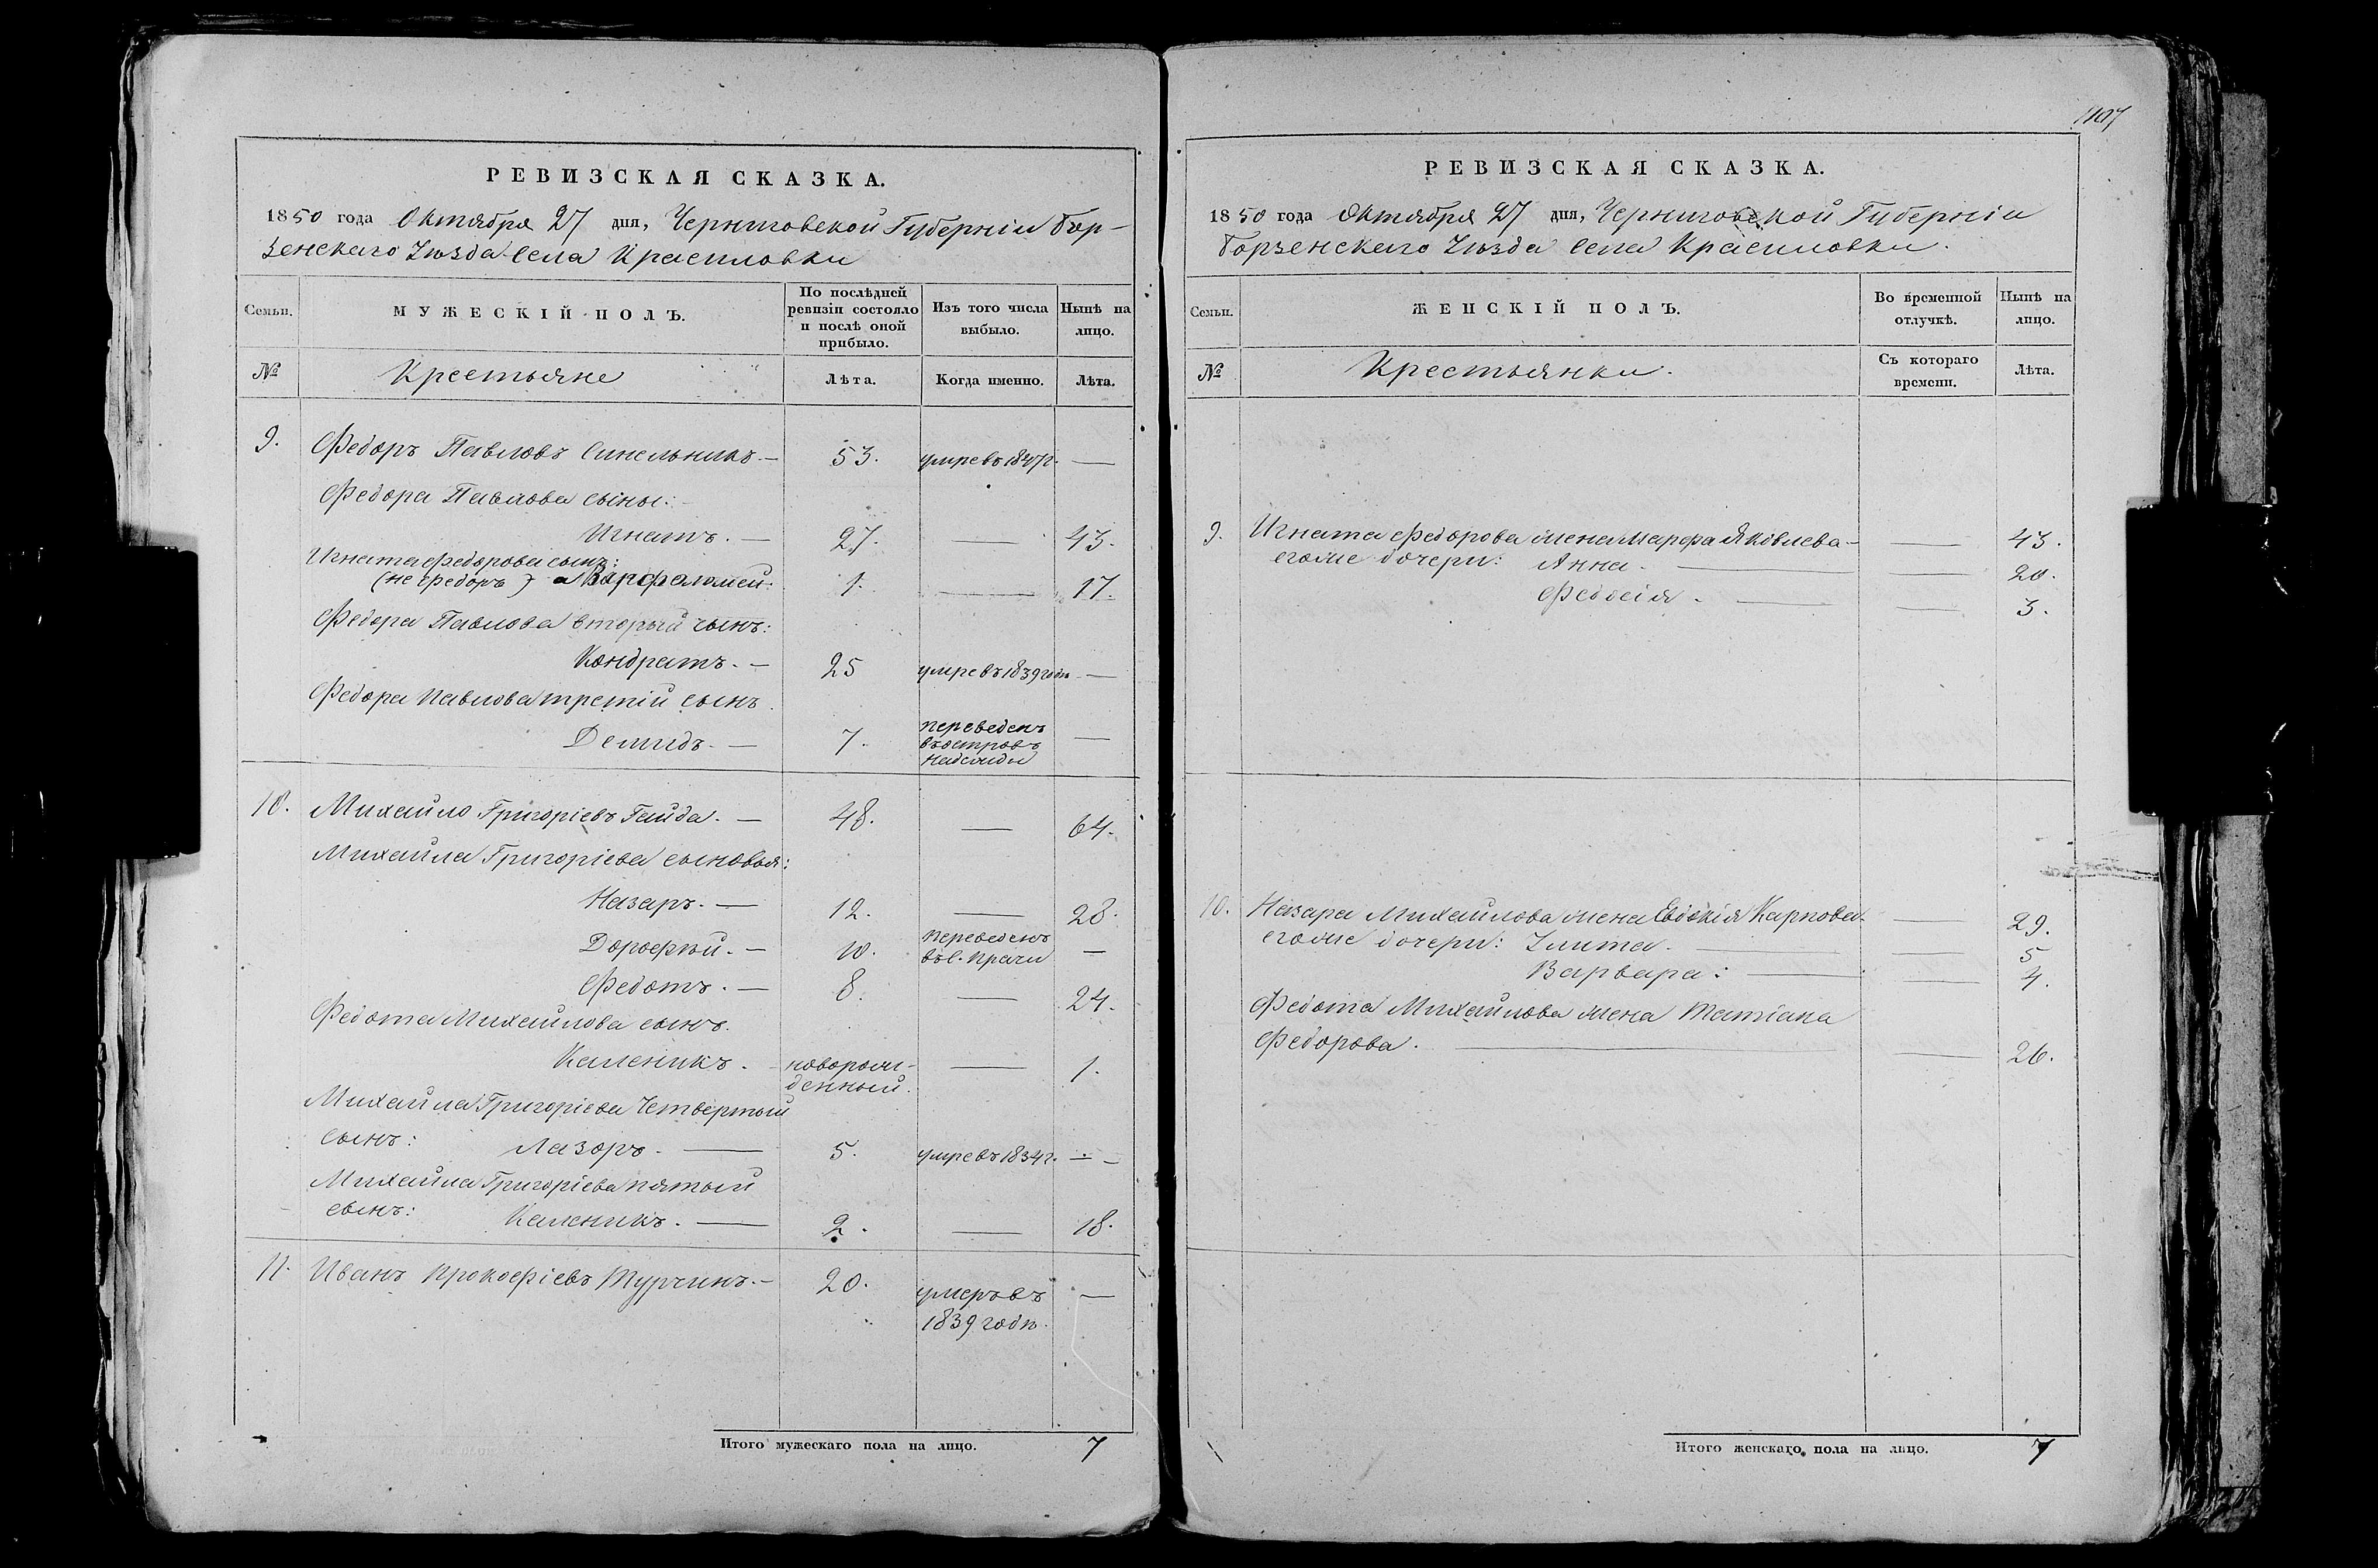 РЕВИЗСКАЯ СКАЗКА.
1850 года Октября 27 дня, Черниговской Губерніи Бор-
зенскаго Уѣзда Села Красиловки
Семьи.
МУЖЕСКІЙ ПОЛЪ.
По послѣдней
ревизіи состояло
и послѣ оной
прибыло.
Изъ того числа
выбыло.
Нынѣ на
лицо.
№
Крестьяне
Лѣта.
Когда именно.
Лѣта.
9. Федоръ Павловъ Синельникъ. — 53. умре въ 1847 г. —
Федора Павлова сыны:
Игнатъ. — 27. — 43.
Игната Федорова сынъ:
(не Федоръ) а Варфаломей. 1. — 17.
Федора Павлова вторый сынъ:
Кондратъ. — 25 умре въ 1839 годѣ —
Федора Павлова третій сынъ.
Демидъ. — 7. переведенъ —
въ островъ
надежды
10. Михайло Григоріевъ Гайда. — 48. — 64.
Михайла Григоріева сыновья:
Назаръ. — 12. — 28.
Дорофѣй. — 10. переведенъ —
въ с. Прачи
Федотъ. — 8. — 24.
Федота Михайлова сынъ.
Каленикъ. новорож- — 1.
денный.
Михайла Григоріева Четвертый
сынъ: Лазоръ. — 5. умре въ 1834 г. —
Михайла Григоріева пятый
сынъ: Каленикъ. — 2. — 18.
11. Иванъ Прокофіевъ Турчинъ. — 20. умеръ въ —
1839 годѣ.
Итого мужескаго пола на лицо. 7
1107
РЕВИЗСКАЯ СКАЗКА.
1850 года Октября 27 дня, Черниговской Губерніи
Борзенскаго Уѣзда Села Красиловки.
Семьи.
ЖЕНСКІЙ ПОЛЪ.
Во временной
отлучкѣ.
Нынѣ на
лицо.
№
Крестьянки.
Съ котораго
времени.
Лѣта.
9. Игната Федорова жена Марфа Яковлева — — 43.
его же дочери: Анна. — — 20.
Федосія. — — 3.
10. Назара Михайлова жена Евдокія Карпова. — 29.
его же дочери: Улита. — — 5
Варвара: — — 4.
Федота Михайлова жена Татіана
Федорова. — — 26.
Итого женскаго пола на лицо. 7